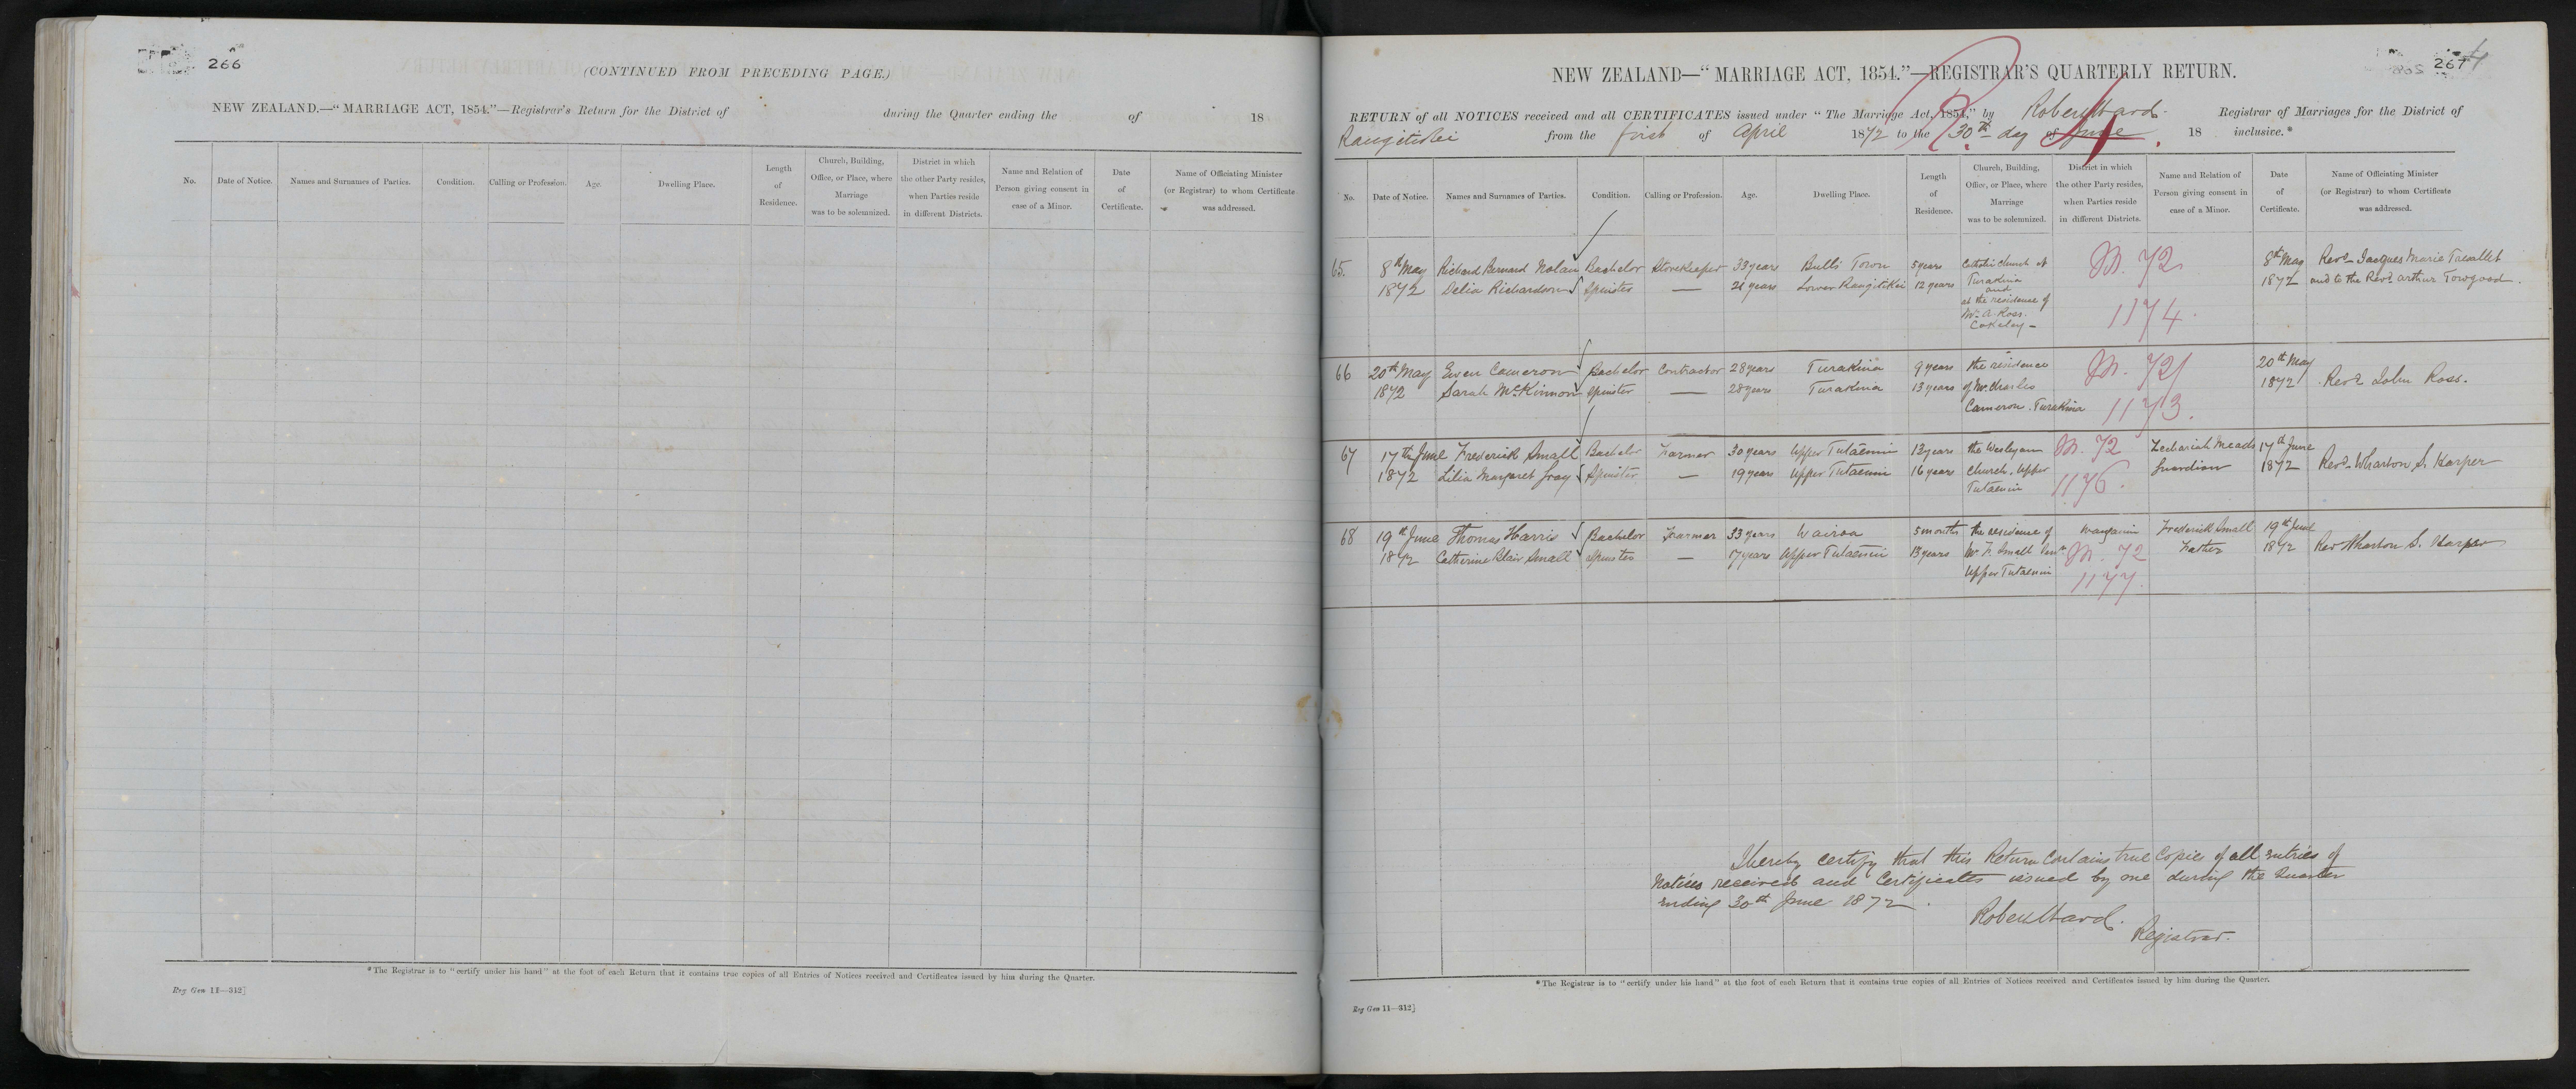 266
(CONTINUED FROM PRECEDING PAGE.)
NEW ZEALAND.—“MARRIAGE ACT, 1854.”—Registrar's Return for the District of during the Quarter ending the of 18
No. Date of Notice. Names and Surnames of Parties. Condition. Calling or Profession. Age. Dwelling Place. Length of Residence. Church, Building, Office, or Place, where Marriage was to be solemnized. District in which the other Party resides, when Parties reside in different Districts. Name and Relation of Person giving consent in case of a Minor. Date of Certificate. Name of Officiating Minister (or Registrar) to whom Certificate was addressed.
*The Registrar is to “certify under his hand” at the foot of each Return that it contains true copies of all Entries of Notices received and Certificates issued by him during the Quarter.
Reg Gen 11—312]
267
NEW ZEALAND—“MARRIAGE ACT, 1854.”—REGISTRAR'S QUARTERLY RETURN.
RETURN of all NOTICES received and all CERTIFICATES issued under “The Marriage Act, 1854,” by Robert Ward Registrar of Marriages for the District of
Rangitikei from the first of April 1872 to the 30th day of June 18 inclusive.*
No. Date of Notice. Names and Surnames of Parties. Condition. Calling or Profession. Age. Dwelling Place. Length of Residence. Church, Building, Office, or Place, where Marriage was to be solemnized. District in which the other Party resides, when Parties reside in different Districts. Name and Relation of Person giving consent in case of a Minor. Date of Certificate. Name of Officiating Minister (or Registrar) to whom Certificate was addressed.
65. 8th May Richard Bernard Nolan Bachelor Storekeeper 33 years Bulls Town 5 years Catholic Church at M. 72 8th May Revd Jacques Marie Trevallet
1872 Delia Richardson Spinster — 21 years Lower Rangitikei 12 years Turakina 1872 and to the Revd Arthur Towgood.
and
at the residence of
Mr A. Ross. 1174.
66 20th May Ewen Cameron Bachelor Contractor 28 years Turakina 9 years the residence M. 72 20th May
1872 Sarah McKinnon Spinster — 28 years Turakina 13 years of Mr Charles 1872 Revd John Ross.
Cameron. Turakina 1173.
67 17th June Frederick Small Bachelor Farmer 30 years Upper Tutaenui 13 years the Wesleyan M. 72 Zechariah Meads 17th June
1872 Lilia Margaret Gray Spinster — 19 years Upper Tutaenui 16 years Church, Upper 1176. Guardian 1872 Revd Wharton S. Harper
Tutaenui
68 19th June Thomas Harris Bachelor Farmer 33 years Wairoa 5 months the residence of Wanganui Frederick Small 19th June
1872 Catherine Blair Small Spinster — 17 years Upper Tutaenui 13 years Mr. F. Small M. 72 Father 1872 Rev Wharton S. Harper
Upper Tutaenui 1177.
I hereby certify that this Return contains true Copies of all entries of
Notices received and Certificates issued by me during the Quarter
ending 30th June 1872.
Robert Ward.
Registrar.
*The Registrar is to “certify under his hand” at the foot of each Return that it contains true copies of all Entries of Notices received and Certificates issued by him during the Quarter.
Reg Gen 11—312]